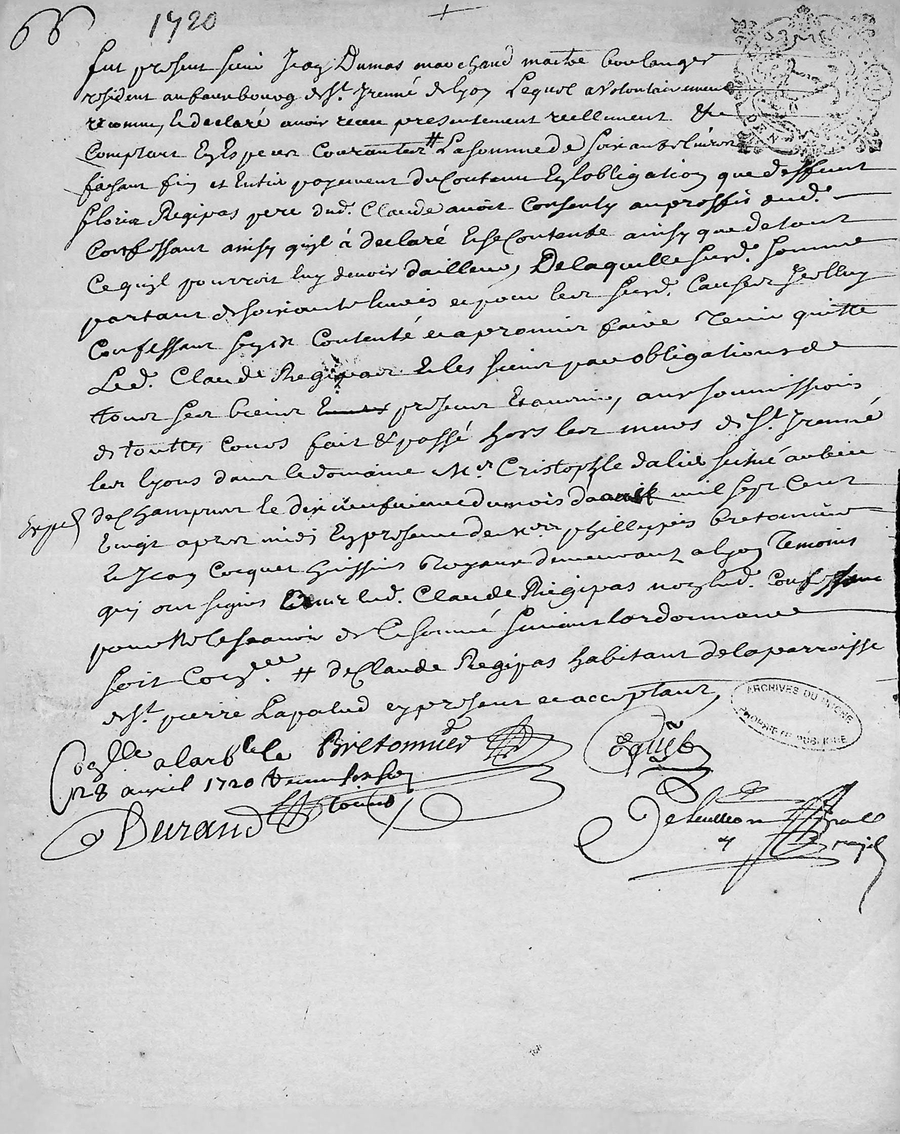 66 1720
fut present sieur Jean Dumas marchand maitre boulanger
resident au fauxbourg de St. Irenné de Lyon Lequel a volontairement
reconnu, & declaré avoir receu presentement reellement &
Comptant En Especes Courantes # La somme de soixante livres
faisant fin et Entier payement du Contenu En lobligation que deffunt
floris Regipas pere dud. Claude avoit Consenty au proffis dud.
Confessant ainsy quil à declaré & se Contente ainsy que de tout
Ce quil pourroit luy devoir dailleurs, De laquelle surd. somme
partant de soixante livres et pour les surd. Causes Icelluy
Confessant sest Contenté et a promis faire Tenir quitte
Led. Claude Regipas & les siens par obligations de
tous ses biens presens & avenir, aux soumissions
de touttes Cours fait & passé hors les murs de St. Irenné
les Lyons dans le domaine Mr Cristophle dalier situé au lieu
Exped de Champvert le dix neufvieme du mois mil sept Cent
Vingt apres midi En presence de Mers phillippes bretonnier
& Jean Cocquet huissiers Royaux demeurant a Lyon Temoins
qui ont signés led. Claude Regipas non led. Confessant
pour ne le scavoir de ce sommé suivant lordonnance
soit Con.lle # de Claude Regipas habitant de la parroisse
de St. pierre Lapalud En present et acceptant,
Con.lle a larb.le le Bretonnier Coquet
28 avril 1720
Durand
ARCHIVES DU RHÔNE
PROPRIÉTÉ PUBLIQUE